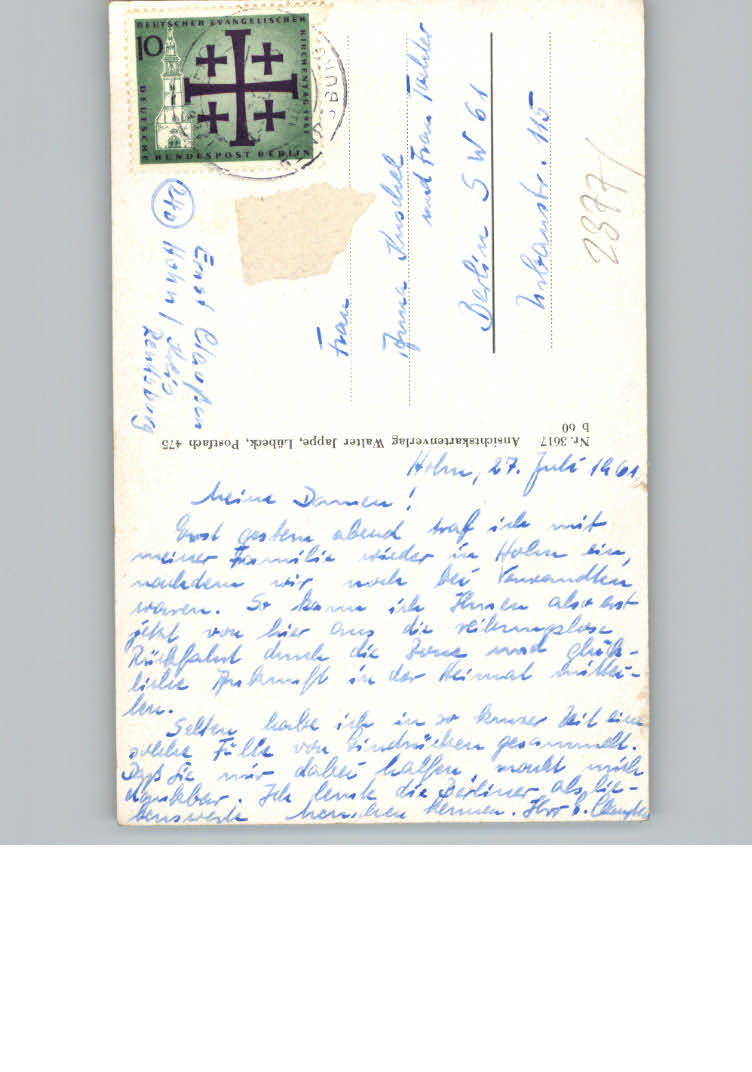 DEUTSCHER EVANGELISCHER
KIRCHENTAG 1961
10
DEUTSCHE
BUNDESPOST BERLIN
Frau
Anna Kuschel
und Frau
Berlin SW 61
Urbanstr. 115
2377/
(24b)
Ernst Claußen
Hohn /
Rendsburg
Nr. 3617 Ansichtskartenverlag Walter Jappe, Lübeck, Postfach 475
b 60
Hohn, 27. Juli 1961
Meine Damen!
Erst gestern abend traf ich mit
meiner Familie wieder in Hohn ein,
nachdem wir noch bei Verwandten
waren. So kann ich Ihnen also erst
jetzt von hier aus die reibungslose
Rückfahrt durch die Zone und glück-
liche Ankunft in der Heimat mittei-
len.
Selten habe ich in so kurzer Zeit eine
solche Fülle von Eindrücken gesammelt.
Daß Sie mir dabei halfen, macht mich
dankbar. Ich lernte die Berliner als lie-
benswerte Menschen kennen. Ihr E. Claußen